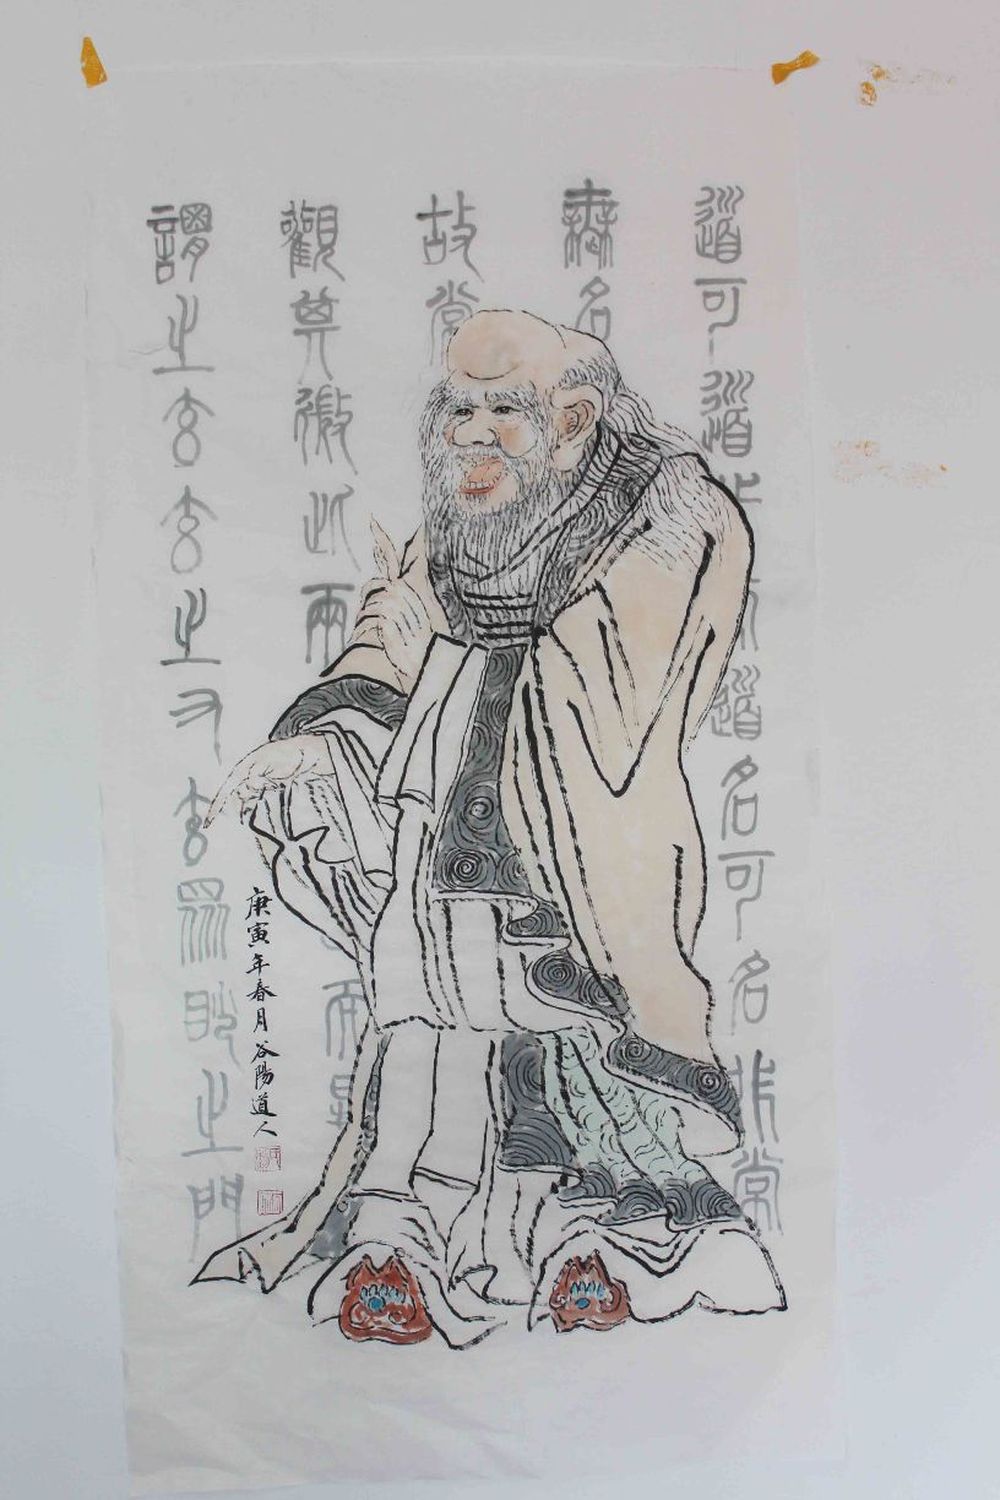 道可道道名可名非常
無名
故常
觀其徼此兩而
庚寅年春月谷陽道人
謂之玄玄之又玄眾眇之門